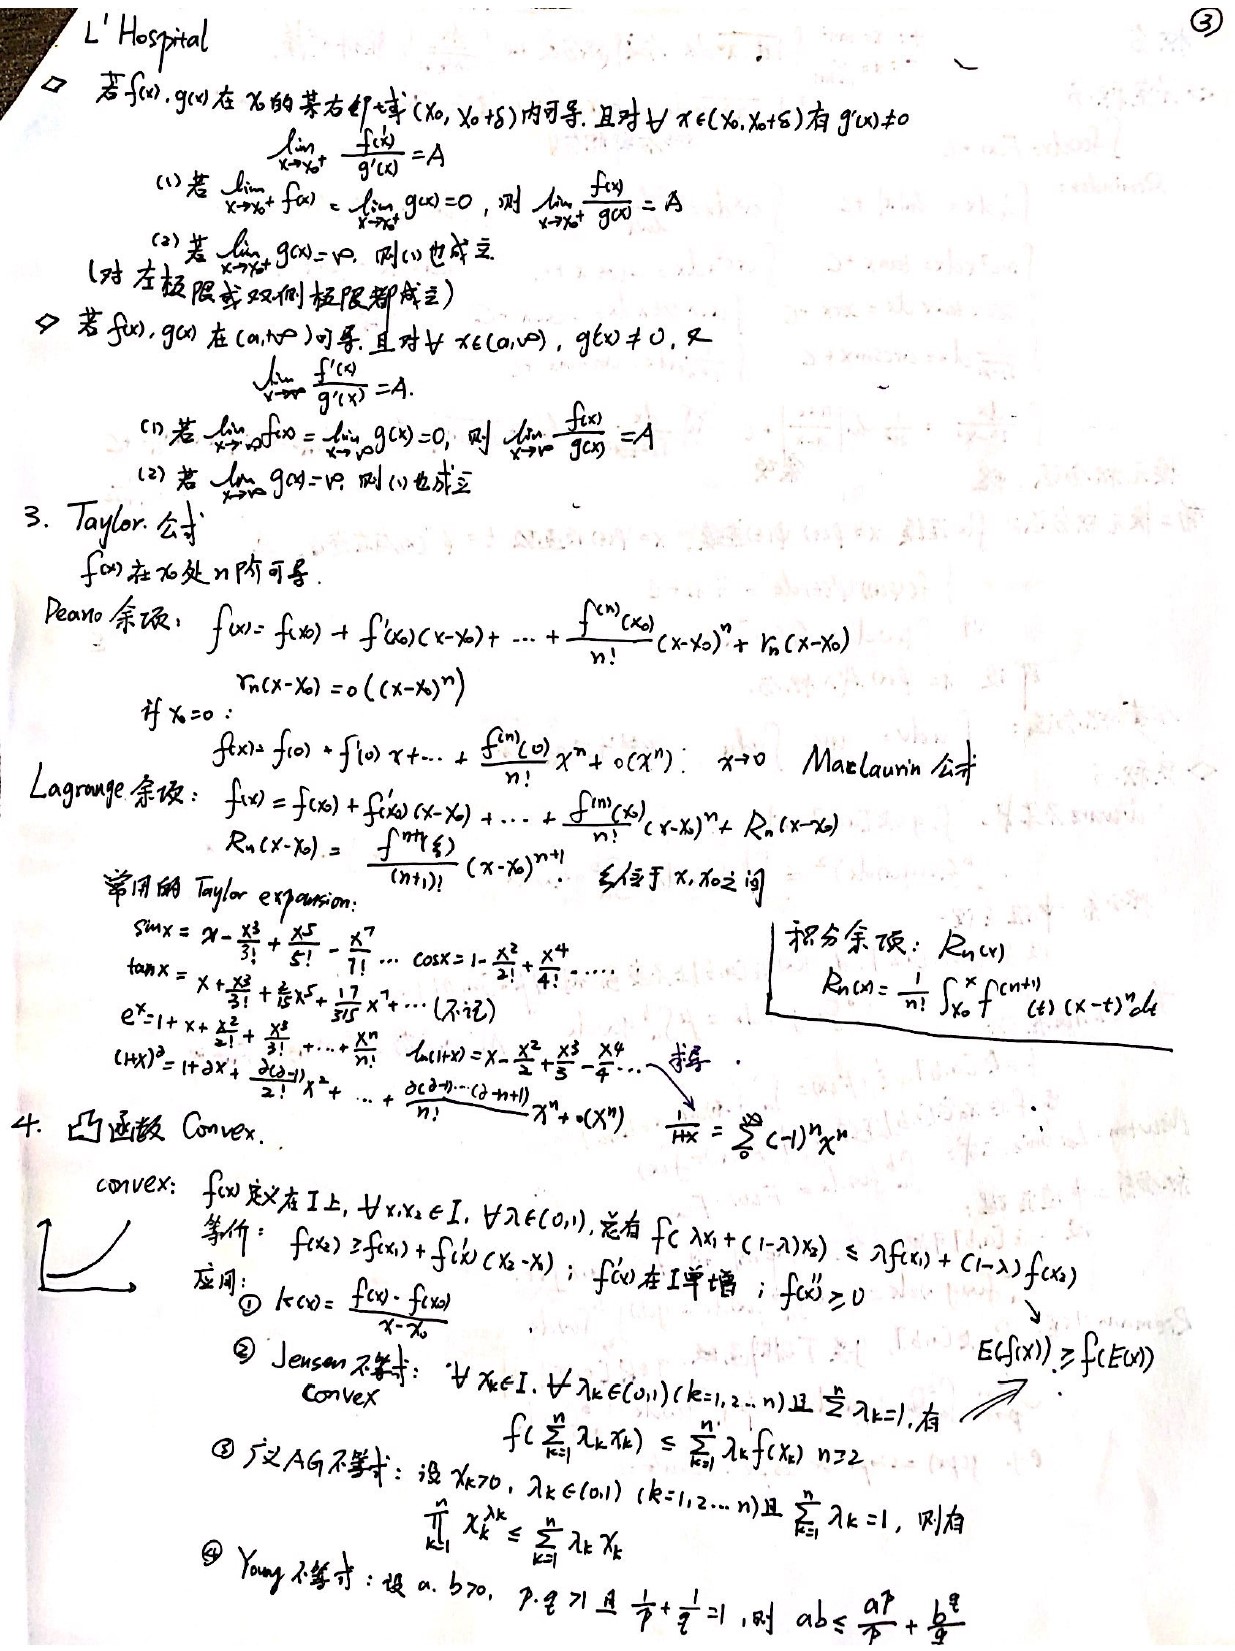 ③
L'Hospital
◇ 若f(x), g(x) 在 x₀ 的某右邻域 (x₀, x₀+δ) 内可导. 且对∀ x∈(x₀, x₀+δ) 有 g'(x)≠0
lim_{x→x₀⁺} f'(x)/g'(x) = A
(1) 若 lim_{x→x₀⁺} f(x) = lim_{x→x₀⁺} g(x)=0, 则 lim_{x→x₀⁺} f(x)/g(x) = A
(2) 若 lim_{x→x₀⁺} g(x)=∞, 则(1)也成立
(对左极限或双侧极限都成立)
◇ 若 f(x), g(x) 在 (a,+∞) 可导. 且对∀ x∈(a,∞), g'(x)≠0, 又
lim_{x→∞} f'(x)/g'(x) = A.
(1) 若 lim_{x→∞} f(x) = lim_{x→∞} g(x)=0, 则 lim_{x→∞} f(x)/g(x) = A
(2) 若 lim_{x→∞} g(x)=∞, 则(1)也成立
3. Taylor. 公式
f(x) 在 x₀ 处 n 阶可导.
Peano 余项: f(x)= f(x₀) + f'(x₀)(x-x₀) + ... + f⁽ⁿ⁾(x₀)/n! (x-x₀)ⁿ + rₙ(x-x₀)
rₙ(x-x₀) = o((x-x₀)ⁿ)
if x₀=0:
f(x)= f(0) + f'(0)x+... + f⁽ⁿ⁾(0)/n! xⁿ + o(xⁿ). x→0 Maclaurin 公式
Lagrange 余项: f(x) = f(x₀) + f'(x₀)(x-x₀) + ... + f⁽ⁿ⁾(x₀)/n! (x-x₀)ⁿ + Rₙ(x-x₀)
Rₙ(x-x₀) = fⁿ⁺¹(ξ)/(n+1)! (x-x₀)ⁿ⁺¹. ξ位于x, x₀之间
常用的 Taylor expansion:
sinx = x - x³/3! + x⁵/5! - x⁷/7! ... cosx = 1 - x²/2! + x⁴/4! - ....
tanx = x + x³/3! + 2/15 x⁵ + 17/315 x⁷ + ... (不记)
eˣ = 1 + x + x²/2! + x³/3! + ... + xⁿ/n! ln(1+x) = x - x²/2 + x³/3 - x⁴/4 ... 求导
(1+x)^∂ = 1+∂x + ∂(∂-1)/2! x² + ... + ∂(∂-1)...(∂-n+1)/n! xⁿ + o(xⁿ) 1/(1+x) = ∑_{0}^{∞} (-1)ⁿxⁿ
积分余项: Rₙ(x)
Rₙ(x) = 1/n! ∫_{x₀}^{x} f⁽ⁿ⁺¹⁾(t)(x-t)ⁿdt
4. 凸函数 Convex.
convex: f(x) 定义在 I 上, ∀x₁x₂∈I, ∀λ∈(0,1), 总有 f(λx₁+(1-λ)x₂) ≤ λf(x₁) + (1-λ)f(x₂)
等价: f(x₂) ≥ f(x₁) + f'(x₁)(x₂-x₁) ; f'(x) 在 I 单增 ; f''(x) ≥ 0
应用: ① k(x) = f(x)-f(x₀)/x-x₀
E(f(x)) ≥ f(E(x))
② Jensen 不等式: ∀ xₖ∈I. ∀ λₖ∈(0,1) (k=1,2...n) 且 ∑ⁿ λₖ=1, 有
convex
f(∑_{k=1}^{n} λₖxₖ) ≤ ∑_{k=1}^{n} λₖf(xₖ) n≥2
③ 广义AG不等式: 设 xₖ>0, λₖ∈(0,1) (k=1,2...n) 且 ∑_{k=1}^{n} λₖ=1, 则有
∏_{k=1}^{n} xₖ^{λₖ} ≤ ∑_{k=1}^{n} λₖxₖ
④ Young 不等式: 设 a. b>0, p.q>1 且 1/p + 1/q = 1, 则 ab ≤ aᵖ/p + b^q/q